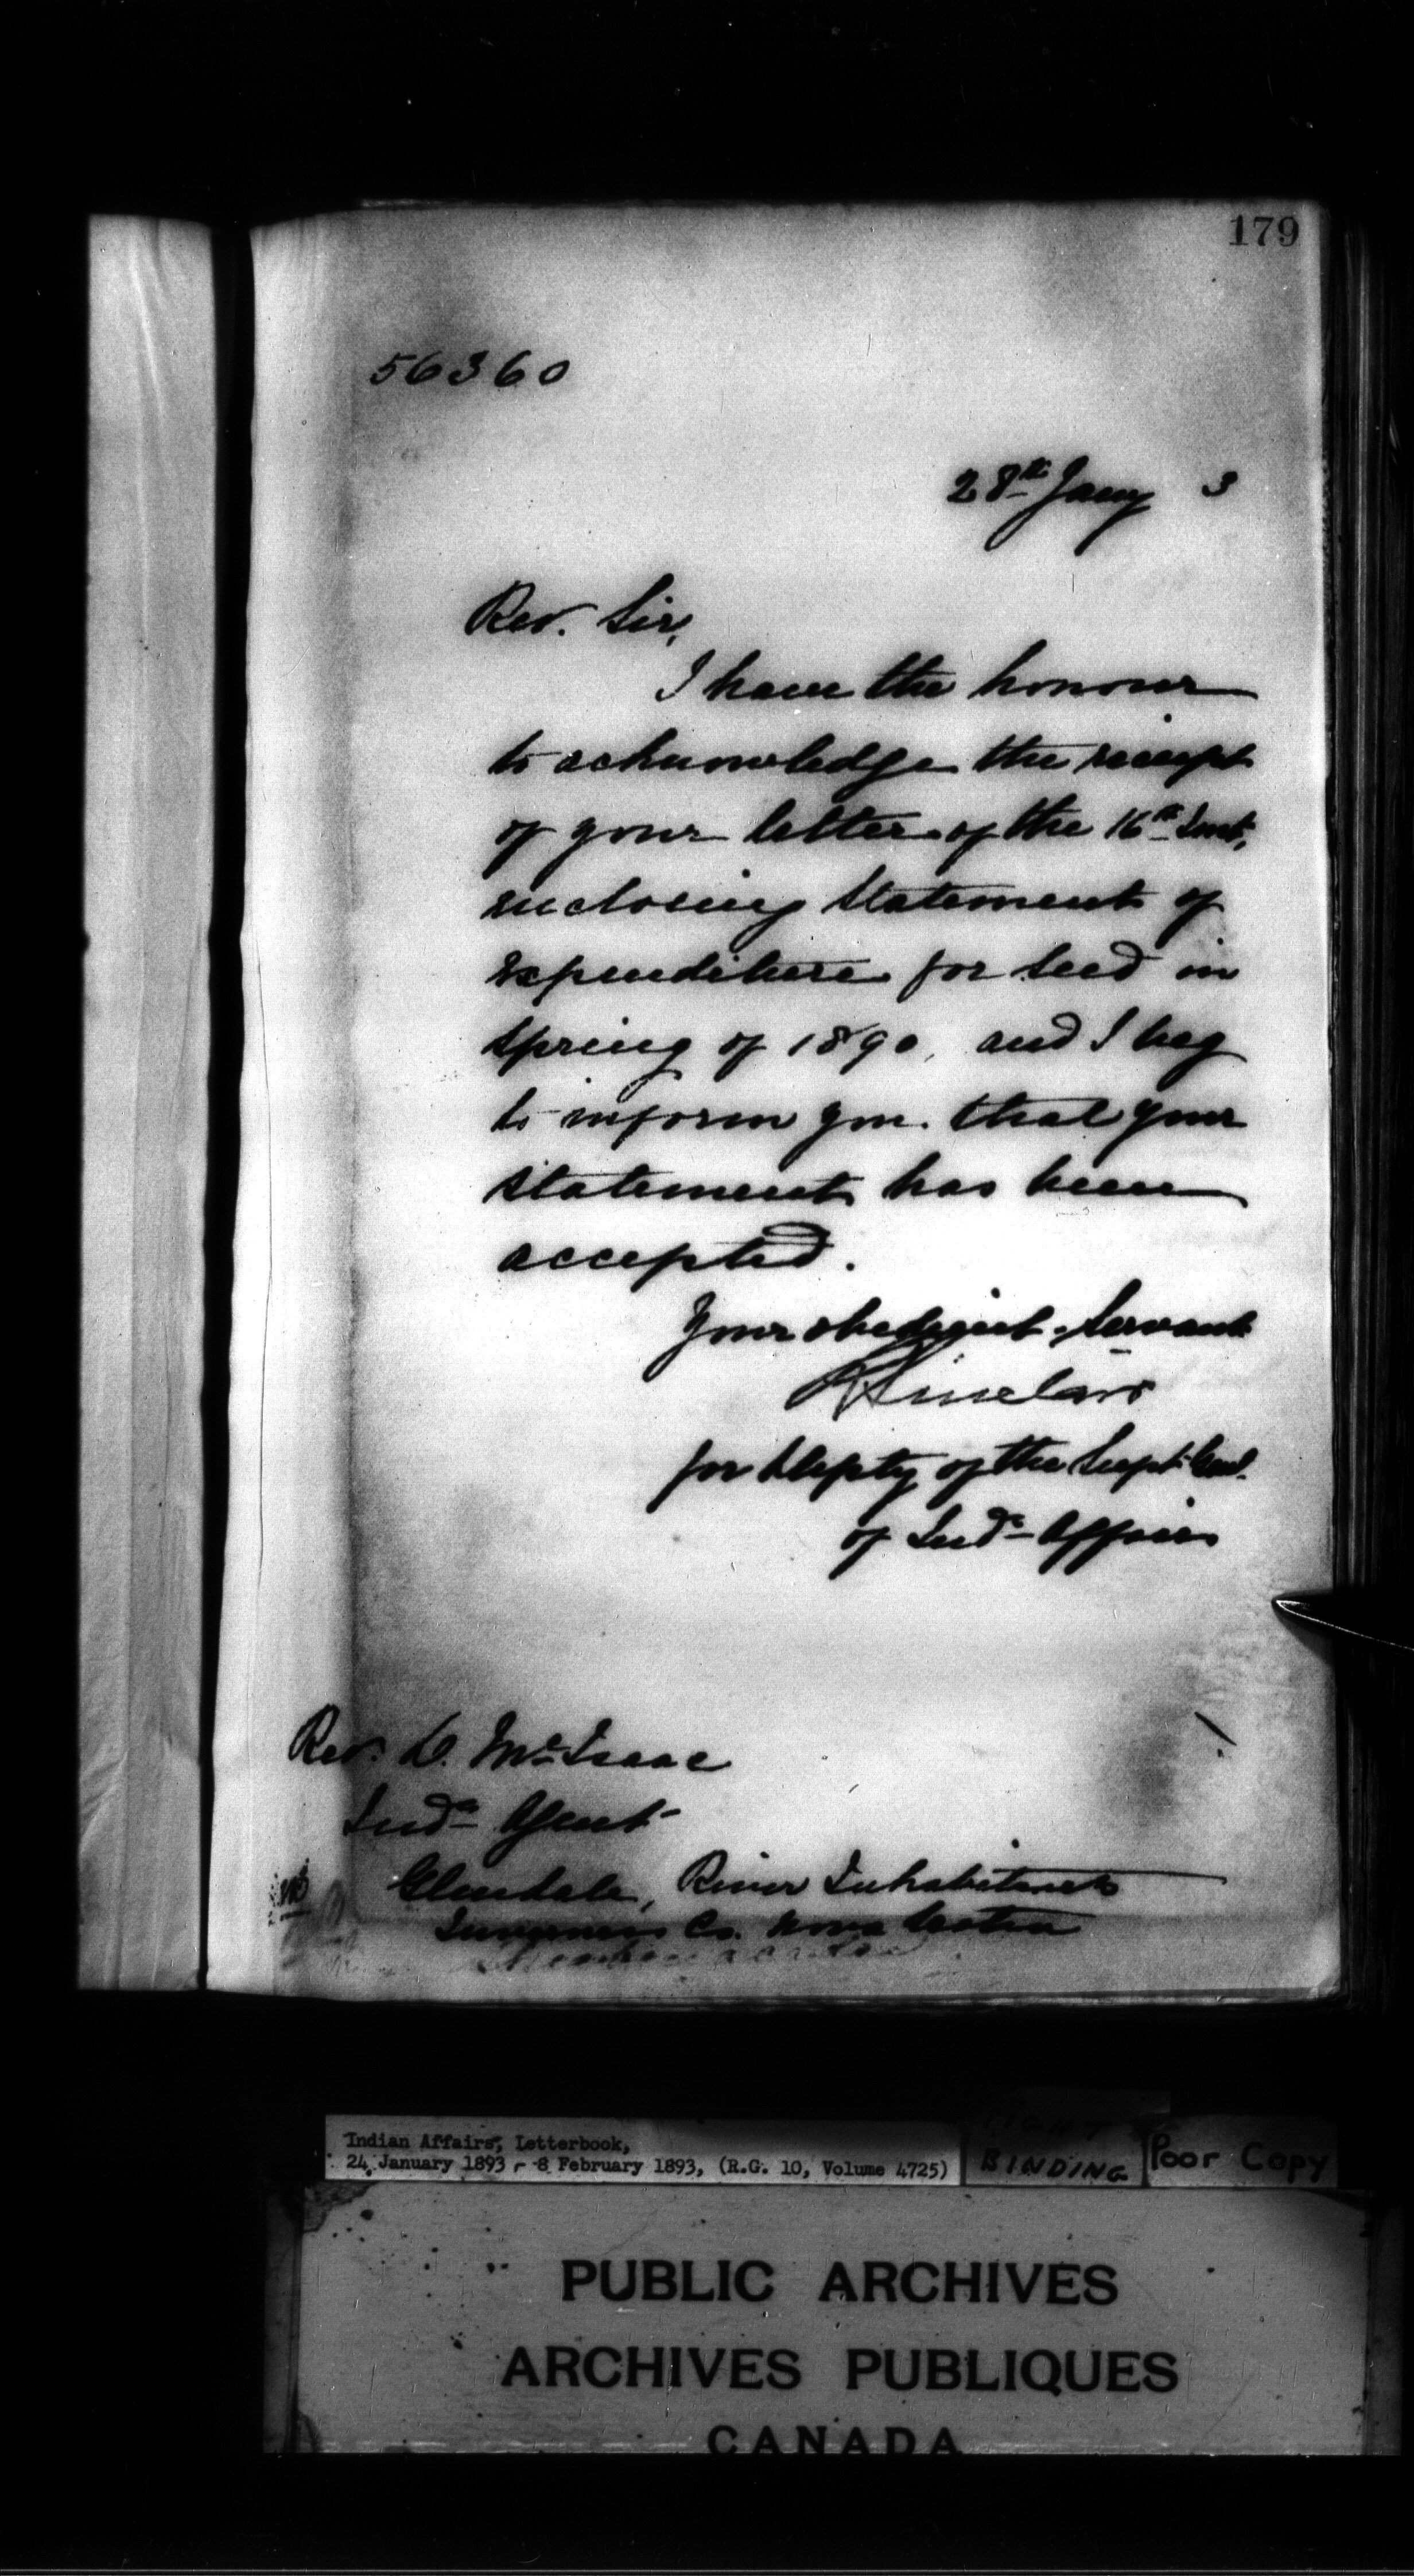 179
56360
28th Jany 3
Rev. Sir,
I have the honour
to acknowledge the receipt
of your letter of the 16th Inst,
enclosing Statement of
expenditure for seed in
Spring of 1890, and I beg
to inform you that your
Statement has been
accepted.
Your obedient Servant
Sinclair
for Deputy of the Supt. Genl.
of Indn Affairs
Rev. D. McIsaac
Indn Agent
Glendale, River Inhabitants
Inverness Co. Nova Scotia
Indian Affairs, Letterbook,
24 January 1893 - 8 February 1893, (R.G. 10, Volume 4725)
BINDING
Poor Copy
PUBLIC ARCHIVES
ARCHIVES PUBLIQUES
CANADA